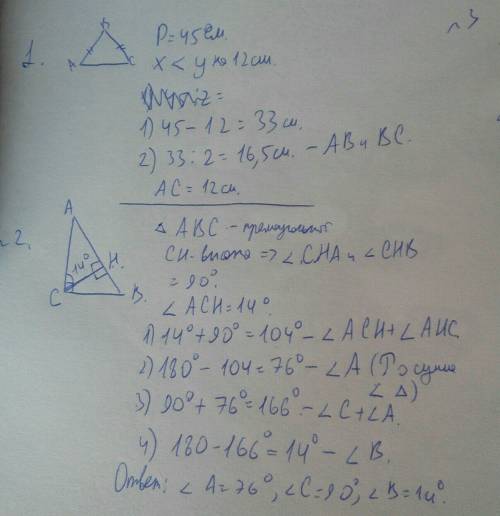 n3
1.
B
A
C
P = 45 см.
x < y на 12 см.
1) 45 - 12 = 33 см.
2) 33 : 2 = 16,5 см. - AB и BC.
AC = 12 см.
2.
A
14°
H.
C
B.
△ ABC - прямоугольн
CH - высота => ∠CHA и ∠CHB
= 90°.
∠ACH = 14°.
1) 14° + 90° = 104° - ∠ACH + ∠AHC
2) 180° - 104 = 76° - ∠A (По сумме
∠ △)
3) 90° + 76° = 166° - ∠C + ∠A.
4) 180 - 166° = 14° - ∠B.
Ответ: ∠A = 76°, ∠C = 90°, ∠B = 14°.